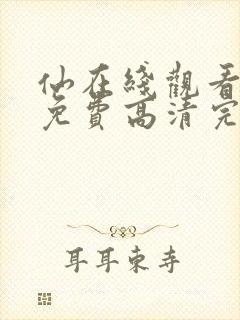 仙在綫觀看
免費高清完
耳耳東寺